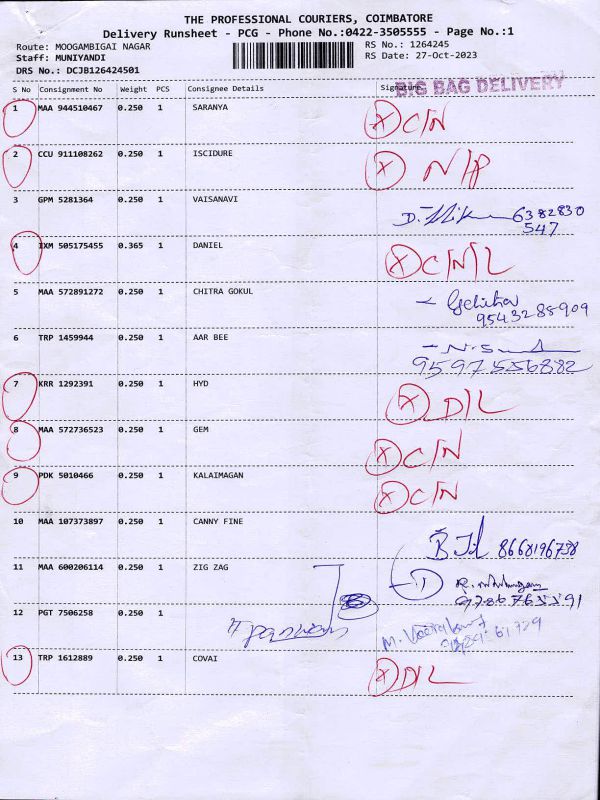 THE PROFESSIONAL COURIERS, COIMBATORE
Delivery Runsheet - PCG - Phone No.:0422-3505555 - Page No.:1
Route: MOOGAMBIGAI NAGAR RS No.: 1264245
Staff: MUNIYANDI RS Date: 27-Oct-2023
DRS No.: DCJB126424501
BIG BAG DELIVERY
S No Consignment No Weight PCS Consignee Details Signature
1 MAA 944510467 0.250 1 SARANYA X C/N
2 CCU 911108262 0.250 1 ISCIDURE X N/P
3 GPM 5281364 0.250 1 VAISANAVI 6382830
547
4 IXM 505175455 0.365 1 DANIEL X C/N/L
5 MAA 572891272 0.250 1 CHITRA GOKUL
9543288909
6 TRP 1459944 0.250 1 AAR BEE
9597556882
7 KRR 1292391 0.250 1 HYD X D/L
8 MAA 572736523 0.250 1 GEM X C/N
9 PDK 5010466 0.250 1 KALAIMAGAN X C/N
10 MAA 107373897 0.250 1 CANNY FINE 8668196738
11 MAA 600206114 0.250 1 ZIG ZAG
12 PGT 7506258 0.250 1
13 TRP 1612889 0.250 1 COVAI X D/L